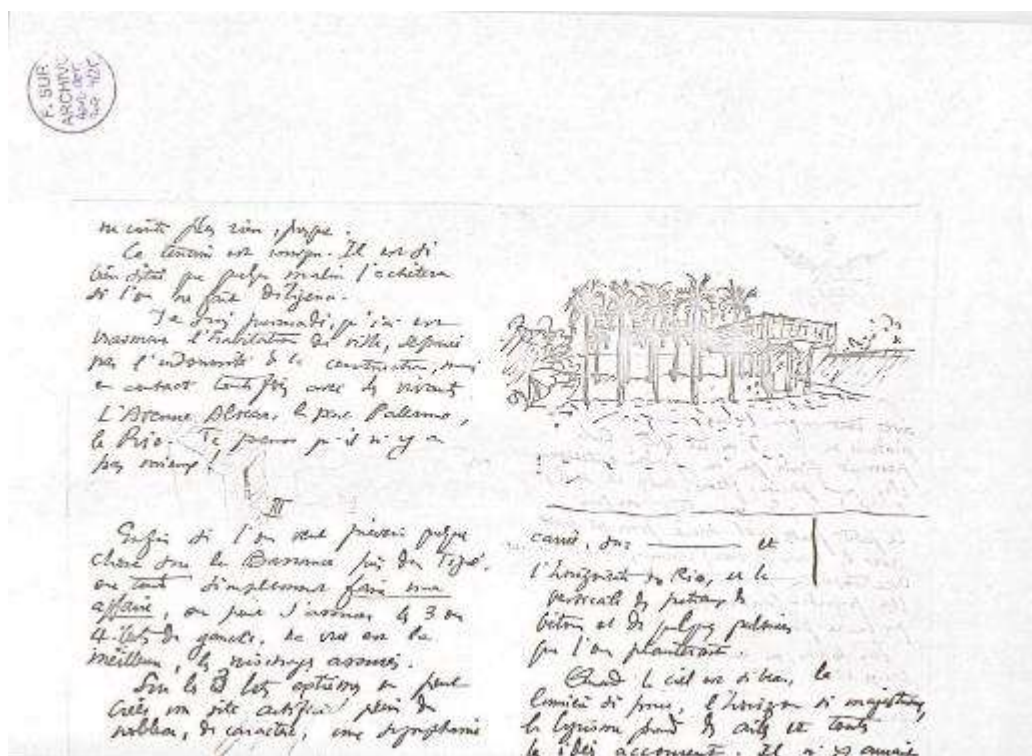 F. SUR
ARCHIVO
ne coûte plus rien,
Ce terrain est unique. Il est si
bien situé que malin l'achètera
si l'on ne fait diligence.
Je suis persuadé, qu'ici est
l'habitation de ville,
par l'indemnité de la construction, mais
en contact avec les vivants
L'Avenue Alvear, le parc Palermo,
le Rio. Je pense qu'il n'y a
pas mieux.
III
Enfin si l'on veut quelque
chose sur la Barranca près du
ou tout simplement faire une
affaire, on peut s'assurer les 3 ou
4 lots de gauche. La vue est la
meilleure, les voisinages assurés.
Sur les 3 lots on peut
créer un site artificiel plein de
noblesse, de caractère, une symphonie
carrée, sur et
l'horizontale du Rio, et la
verticale des poteaux de
béton et de quelques palmiers
que l'on planterait.
Quand le ciel est si beau, la
lumière si pure, l'horizon si majestueux,
le lyrisme prend des ailes et toutes
les idées accourent. Il